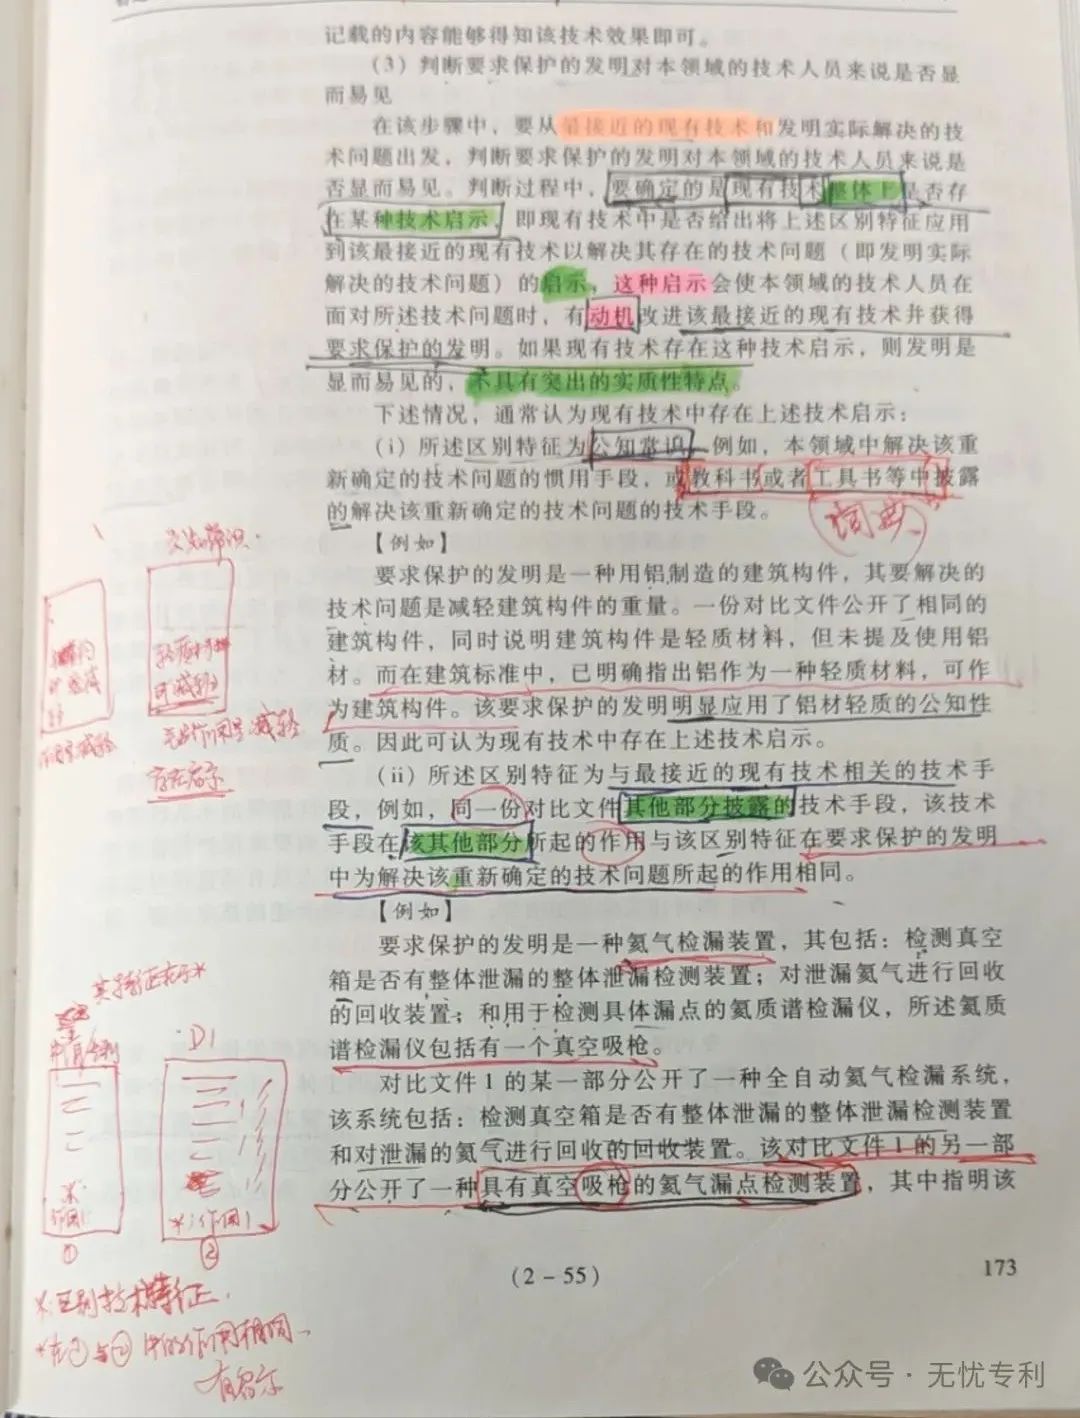 记载的内容能够得知该技术效果即可。
（3）判断要求保护的发明对本领域的技术人员来说是否显
而易见
在该步骤中，要从最接近的现有技术和发明实际解决的技
术问题出发，判断要求保护的发明对本领域的技术人员来说是
否显而易见。判断过程中，要确定的是现有技术整体上是否存
在某种技术启示，即现有技术中是否给出将上述区别特征应用
到该最接近的现有技术以解决其存在的技术问题（即发明实际
解决的技术问题）的启示，这种启示会使本领域的技术人员在
面对所述技术问题时，有动机改进该最接近的现有技术并获得
要求保护的发明。如果现有技术存在这种技术启示，则发明是
显而易见的，不具有突出的实质性特点。
下述情况，通常认为现有技术中存在上述技术启示：
（i）所述区别特征为公知常识，例如，本领域中解决该重
新确定的技术问题的惯用手段，或教科书或者工具书等中披露
的解决该重新确定的技术问题的技术手段。
词典
【例如】
公知常识
要求保护的发明是一种用铝制造的建筑构件，其要解决的
技术问题是减轻建筑构件的重量。一份对比文件公开了相同的
建筑构件，同时说明建筑构件是轻质材料，但未提及使用铝
材。而在建筑标准中，已明确指出铝作为一种轻质材料，可作
为建筑构件。该要求保护的发明明显应用了铝材轻质的公知性
质。因此可认为现有技术中存在上述技术启示。
轻质材料
可减轻
存在启示
（ii）所述区别特征为与最接近的现有技术相关的技术手
段，例如，同一份对比文件其他部分披露的技术手段，该技术
手段在该其他部分所起的作用与该区别特征在要求保护的发明
中为解决该重新确定的技术问题所起的作用相同。
【例如】
要求保护的发明是一种氦气检漏装置，其包括：检测真空
箱是否有整体泄漏的整体泄漏检测装置；对泄漏氦气进行回收
的回收装置；和用于检测具体漏点的氦质谱检漏仪，所述氦质
谱检漏仪包括有一个真空吸枪。
对比文件1的某一部分公开了一种全自动氦气检漏系统，
该系统包括：检测真空箱是否有整体泄漏的整体泄漏检测装置
和对泄漏的氦气进行回收的回收装置。该对比文件1的另一部
分公开了一种具有真空吸枪的氦气漏点检测装置，其中指明该
D1
作用1
*：作用1
①
②
*：区别技术特征.
*在①与②中的作用相同
有启示
（2－55）
173
公众号·无忧专利